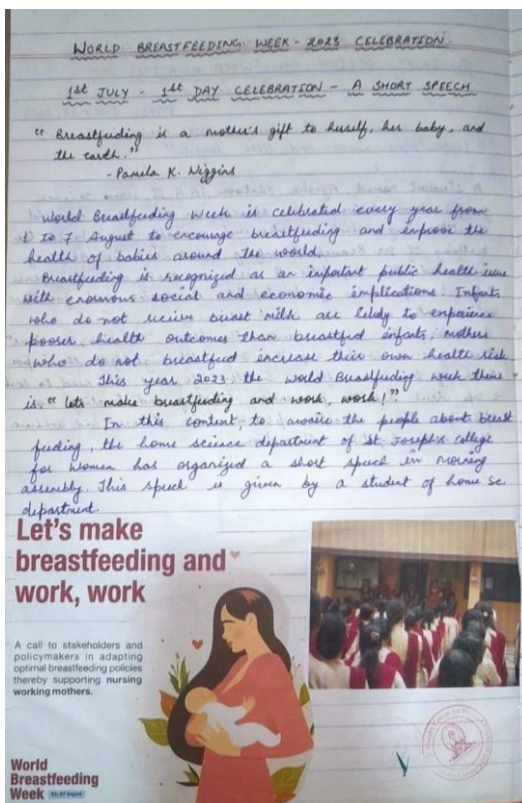 WORLD BREASTFEEDING WEEK - 2023 CELEBRATION
1st JULY - 1st DAY CELEBRATION - A SHORT SPEECH
"Breastfeeding is a mother's gift to herself, her baby, and
the earth."
- Pamela K. Wiggins
World Breastfeeding Week is celebrated every year from
1 to 7 August to encourage breastfeeding and improve the
health of babies around the world.
Breastfeeding is recognized as an important public health issue
with enormous social and economic implications. Infants
who do not receive breast milk are likely to experience
pooser health outcomes than breastfed infants, mothers
who do not breastfeed increase their own health risk.
This year 2023 the world Breastfeeding week theme
is, "Let's make breastfeeding and work, work!"
In this context, to aware the people about breast
feeding, the home science department of St. Joseph's college
for women has organized a short speech in morning
assembly. This speech is given by a student of home sc.
department.
Let's make
breastfeeding and
work, work
A call to stakeholders and
policymakers in adapting
optimal breastfeeding policies
thereby supporting nursing
working mothers.
World
Breastfeeding
Week 01-07 August